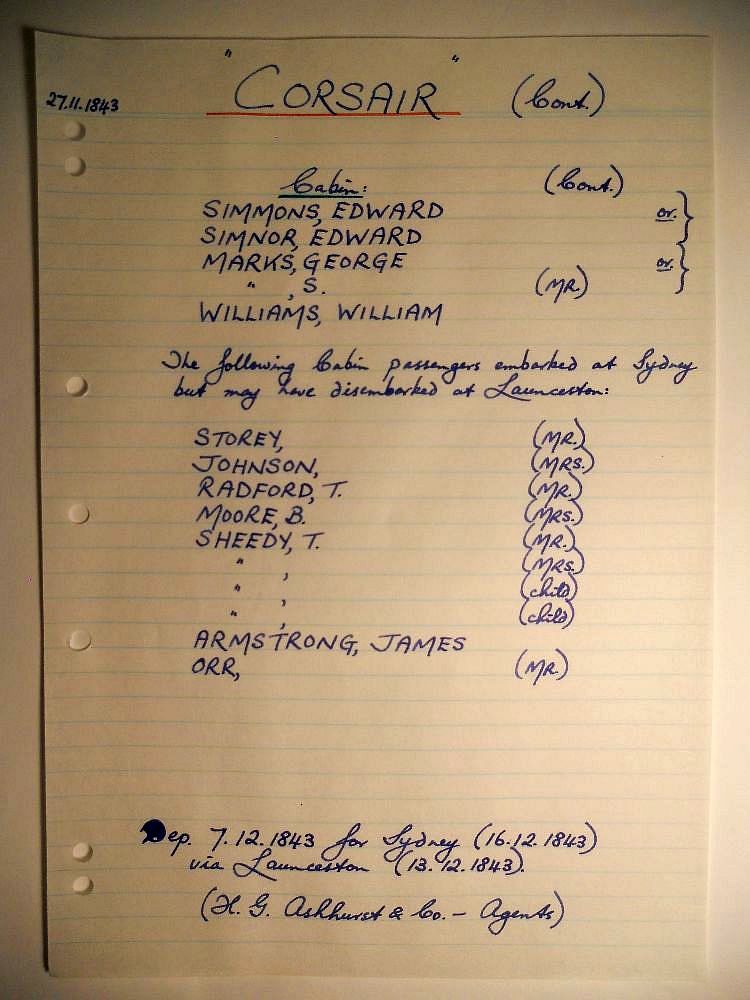 27.11.1843 "CORSAIR" (Cont.)
Cabin: (Cont.)
SIMMONS, EDWARD or. }
SIMNOR, EDWARD
MARKS, GEORGE or. }
" , S. (MR.)
WILLIAMS, WILLIAM
The following Cabin passengers embarked at Sydney
but may have disembarked at Launceston:
STOREY, (MR.)
JOHNSON, (MRS.)
RADFORD, T. (MR.)
MOORE, B. (MRS.)
SHEEDY, T. (MR.)
" , (MRS.)
" , (child)
" , (child)
ARMSTRONG, JAMES
ORR, (MR.)
Dep. 7.12.1843 for Sydney (16.12.1843)
via Launceston (13.12.1843).
(H. G. Ashhurst & Co. - Agents)